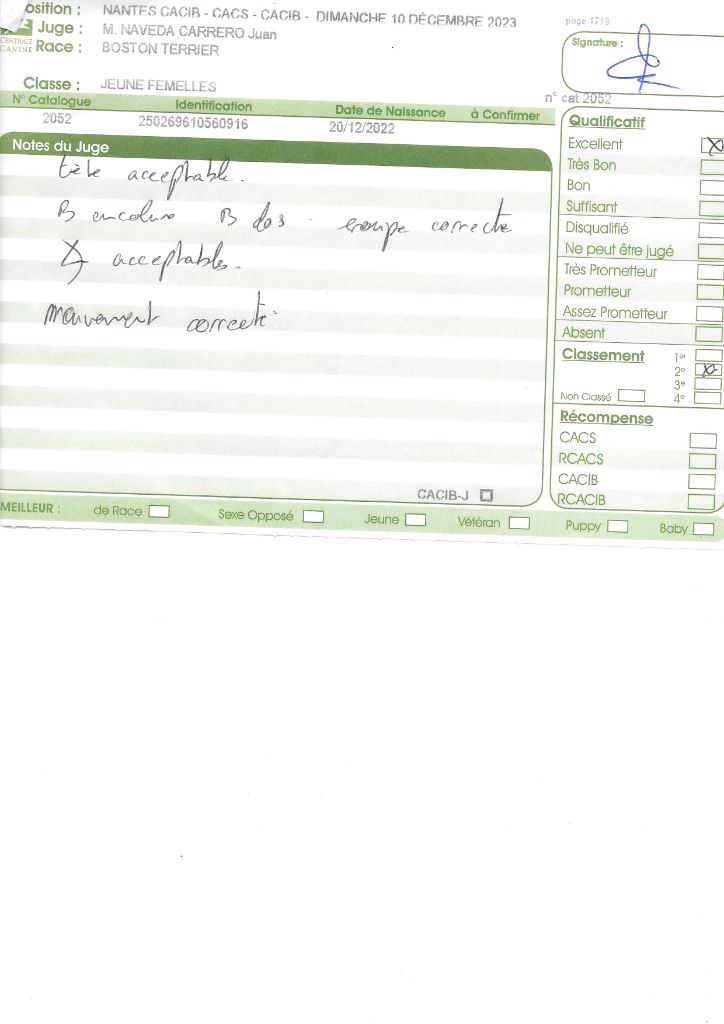 osition : NANTES CACIB - CACS - CACIB - DIMANCHE 10 DÉCEMBRE 2023
page 1719
Juge : M. NAVEDA CARRERO Juan
CENTRALE CANINE
Race : BOSTON TERRIER
Signature :
Classe : JEUNE FEMELLES
n° cat 2052
N° Catalogue Identification Date de Naissance à Confirmer
2052 250269610560916 20/12/2022
Notes du Juge
tête acceptable.
B encolure B dos . croupe correcte
acceptables.
mouvement correct.
Qualificatif
Excellent X
Très Bon
Bon
Suffisant
Disqualifié
Ne peut être jugé
Très Prometteur
Prometteur
Assez Prometteur
Absent
Classement 1er
2e X
3e
Non Classé 4e
Récompense
CACS
RCACS
CACIB
RCACIB
CACIB-J
MEILLEUR : de Race Sexe Opposé Jeune Vétéran Puppy Baby